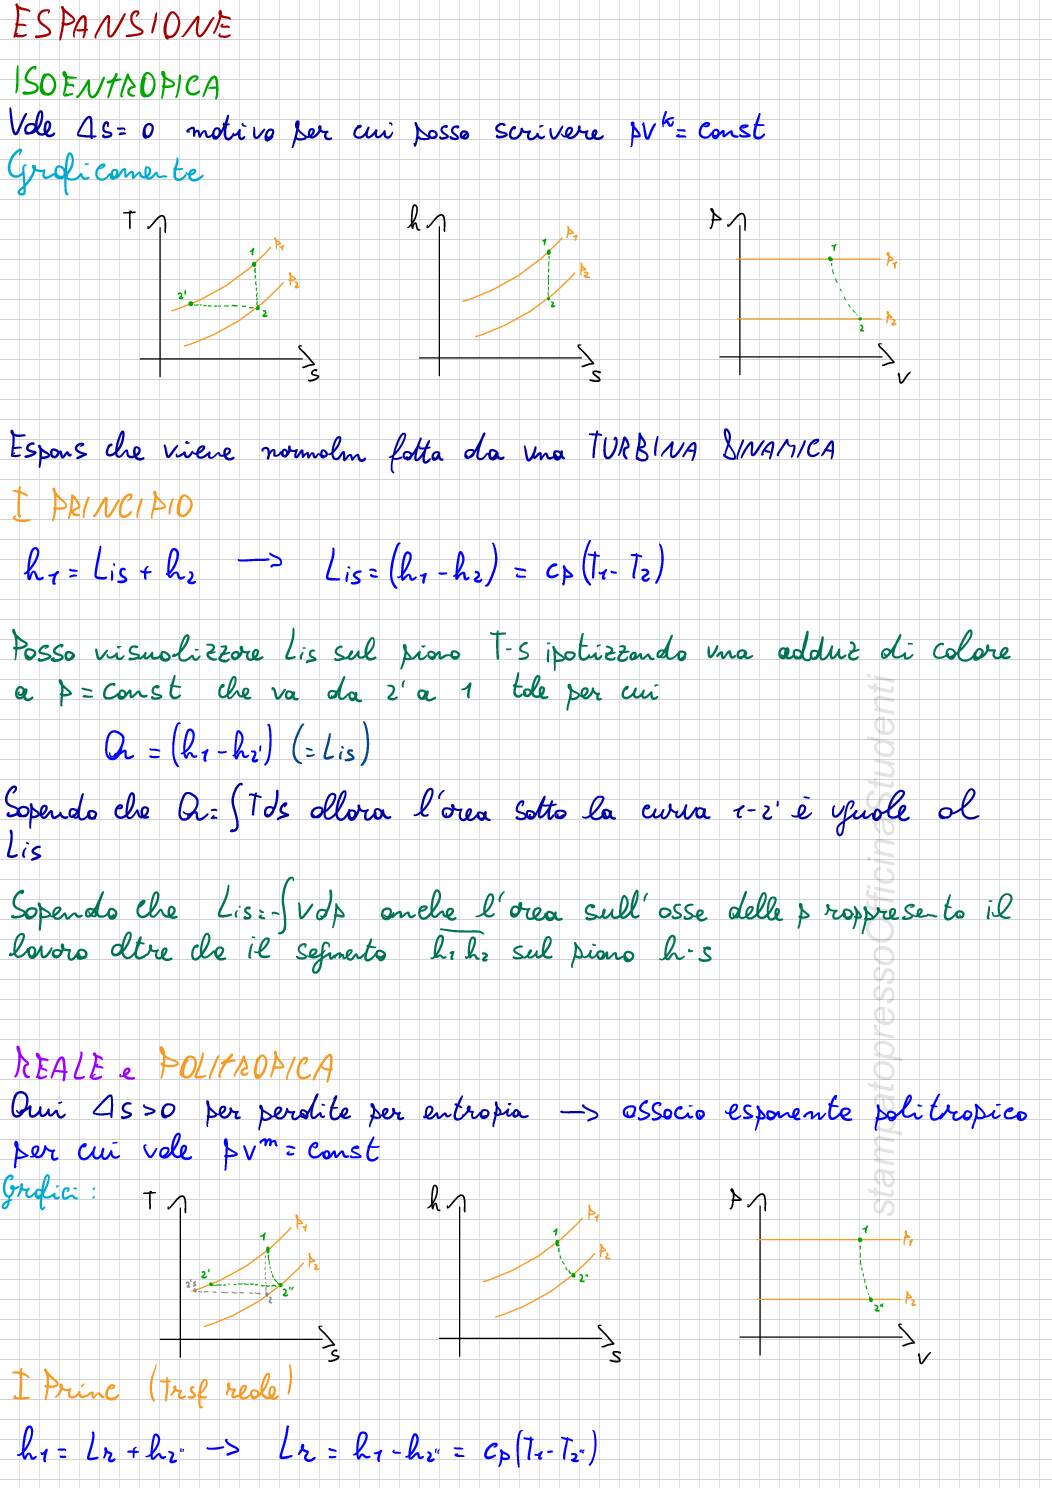 ESPANSIONE
ISOENTROPICA
Vale Δs=0 motivo per cui posso scrivere pv^k = const
Graficamente
T h p
1 p₁ 1 p₁ 1 p₁
2' p₂ p₂
2 2 2 p₂
s s v
Espans che viene normalm fatta da una TURBINA DINAMICA
I PRINCIPIO
h₁ = Lis + h₂ → Lis = (h₁-h₂) = cp(T₁-T₂)
Posso visualizzare Lis sul piano T-s ipotizzando una adduz di calore
a p=const che va da 2' a 1 tale per cui
Q = (h₁-h₂') (=Lis)
Sapendo che Q=∫Tds allora l'area sotto la curva 1-2' è uguale al
Lis
Sapendo che Lis=-∫vdp anche l'area sull'asse delle p rappresenta il
lavoro oltre che il segmento h₁h₂ sul piano h-s
REALE e POLITROPICA
Qui Δs>0 per perdite per entropia → associo esponente politropico
per cui vale pv^m = const
Grafici:
T h p
1 p₁ 1 p₁ 1 p₁
2' p₂ p₂
2's 2'' 2'' 2'' p₂
2
s s v
I Princ (Trsf reale)
h₁ = Lr + h₂'' → Lr = h₁-h₂'' = cp(T₁-T₂'')
stampatopressoOfficinaStudenti